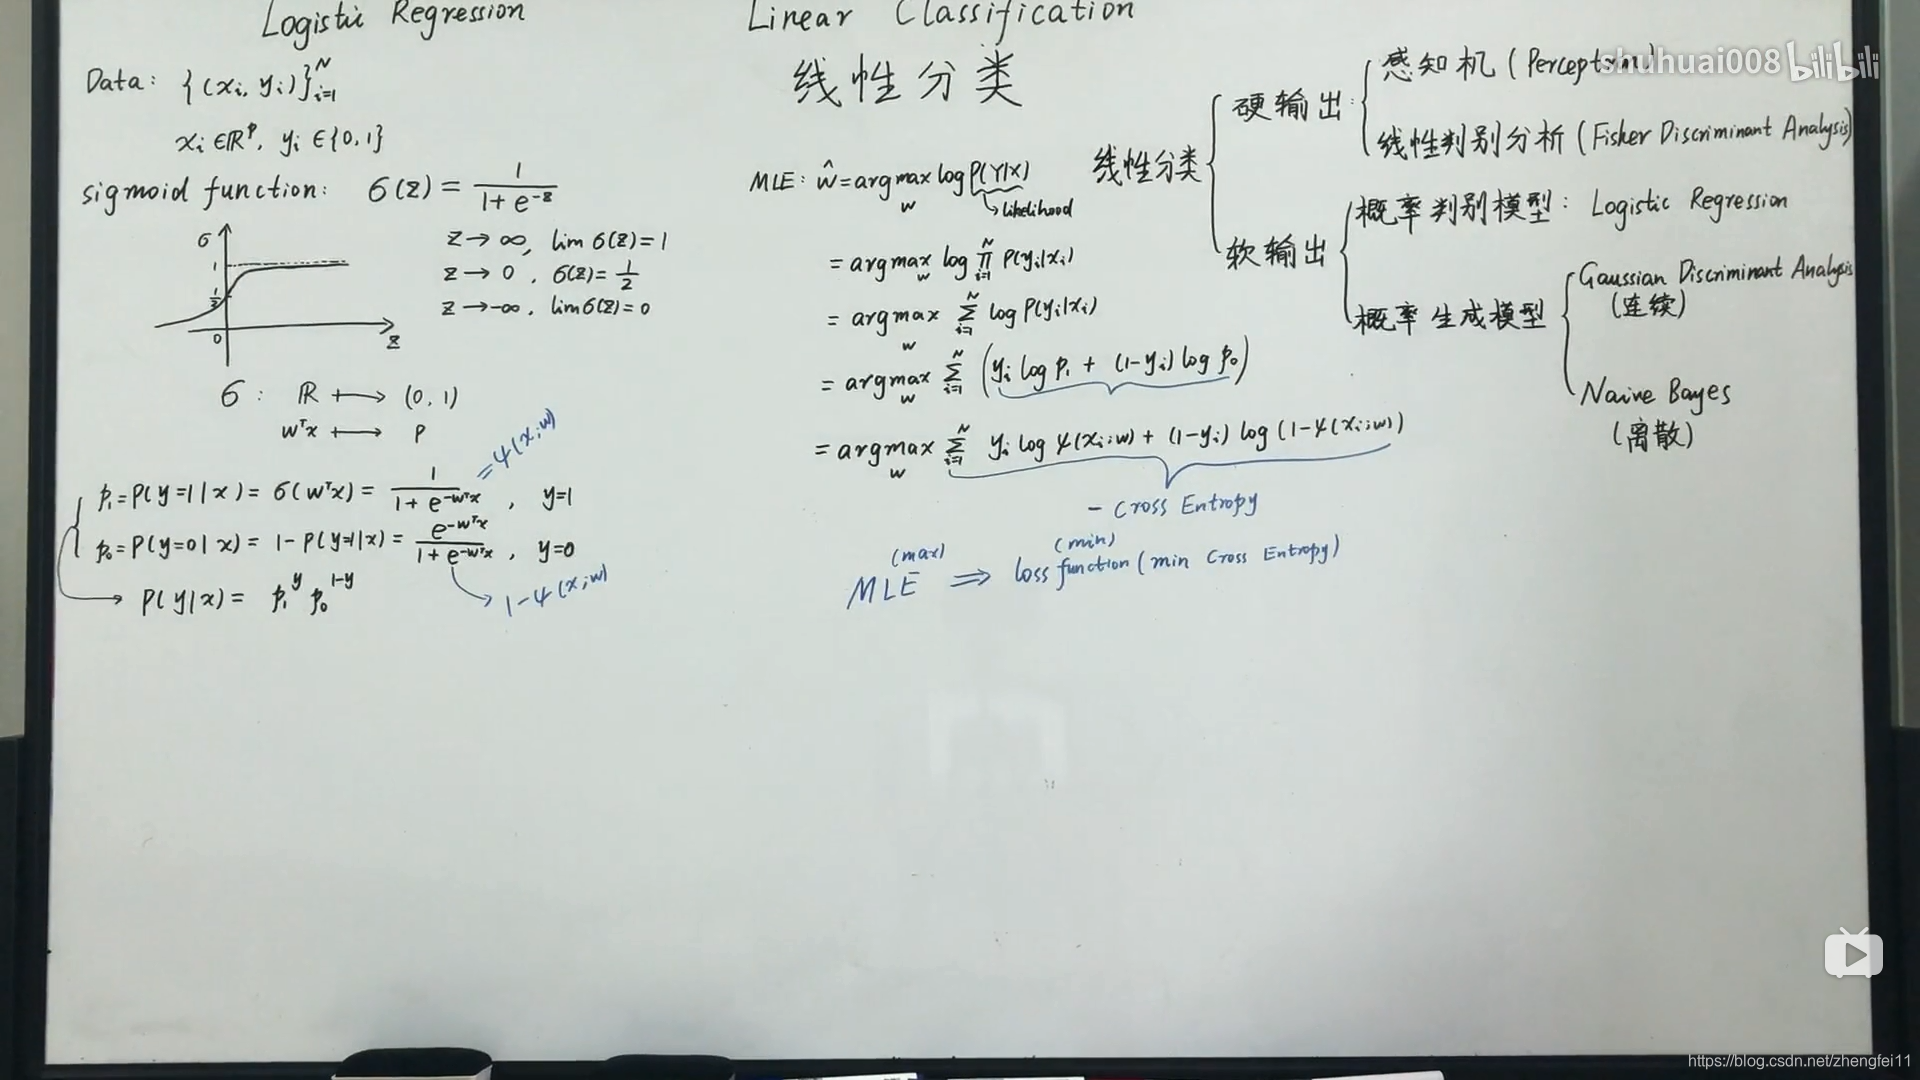 Logistic Regression
Data: {(xi, yi)}_{i=1}^N
xi ∈ ℝ^p, yi ∈ {0,1}
sigmoid function: σ(z) = 1/(1+e^{-z})
σ
1
1/2
0
z
z → ∞, lim σ(z) = 1
z → 0, σ(z) = 1/2
z → -∞, lim σ(z) = 0
σ: ℝ ↦ (0, 1)
w^T x ↦ p
p1 = P(y=1|x) = σ(w^T x) = 1/(1+e^{-w^T x}), y=1
= ψ(x;w)
p0 = P(y=0|x) = 1-P(y=1|x) = e^{-w^T x}/(1+e^{-w^T x}), y=0
1-ψ(x;w)
P(y|x) = p1^y p0^{1-y}
Linear Classification
线性分类
MLE: ŵ = argmax_w log P(Y|X)
likelihood
= argmax_w log ∏_{i=1}^N P(yi|xi)
= argmax_w ∑_{i=1}^N log P(yi|xi)
= argmax_w ∑_{i=1}^N (yi log p1 + (1-yi) log p0)
= argmax_w ∑_{i=1}^N yi log ψ(xi;w) + (1-yi) log (1-ψ(xi;w))
- Cross Entropy
(max) (min)
MLE ⇒ loss function (min Cross Entropy)
线性分类
硬输出:
感知机 (Perceptron)
线性判别分析 (Fisher Discriminant Analysis)
软输出
概率判别模型: Logistic Regression
概率生成模型
Gaussian Discriminant Analysis
(连续)
Naive Bayes
(离散)
shuhuai008 bilibili
https://blog.csdn.net/zhengfei11